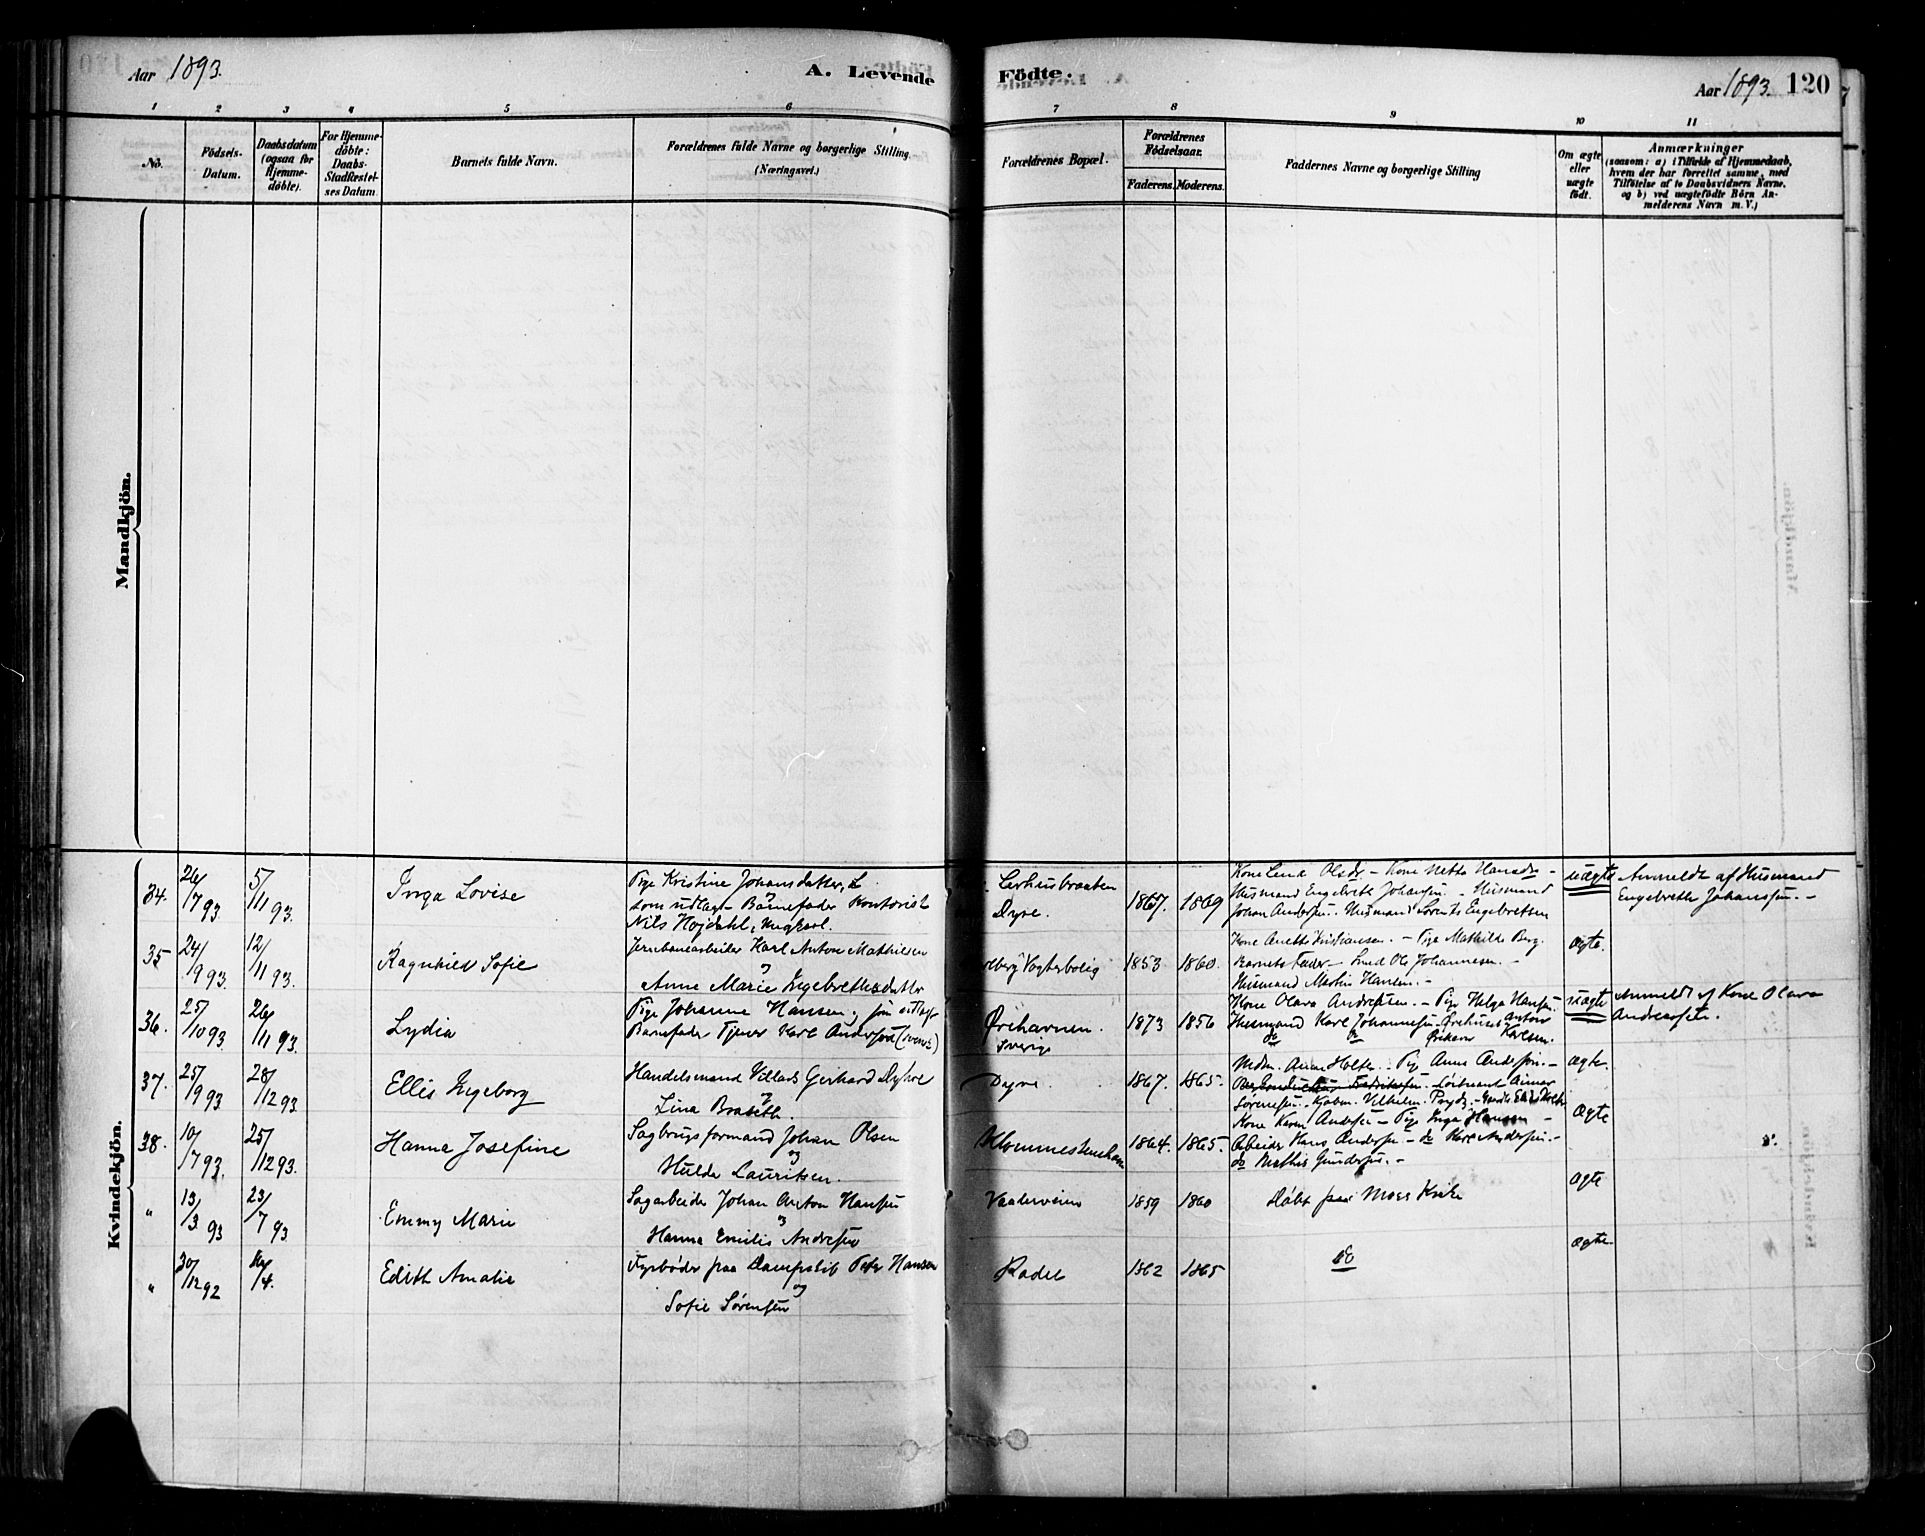 Aar 1893.
A. Levende
Födte.
Aar 1893. 120
1 2 3 4 5 6 7 8 9 10 11
No.
Födsels-
Datum.
Daabsdatum
(ogsaa for
Hjemme-
döbte).
For Hjemme-
döbte:
Daabs-
Stadfæstel-
ses Datum.
Barnets fulde Navn.
Forældrenes fulde Navne og borgerlige Stilling.
(Næringsvei.)
Forældrenes Bopæl.
Forældrenes
Födselsaar.
Faderens. Moderens.
Faddernes Navne og borgerlige Stilling
Om ægte
eller
uægte
födt.
Anmærkninger
(saasom: a) i Tilfælde af Hjemmedaab,
hvem der har forrettet samme, med
Tilföielse af to Daabsvidners Navne.
og b) ved uægtefödte Börn An-
melderens Navn m. V.)
Mandkjön.
Kvindekjön.
34. 26/7 93 5/11 93. Inga Lovise
Pige Kristine Johansdatter,
som udlagt Barnefader Kontorist
Nils Højdahl, Ungkarl.
Dyre.
1867. 1869
Kone Lena Olsdr - Kone Netta Hansdr -
Husmand Engebrett Johansen. - Husmand
Johan Andersen. - Husmand Lorents Engebretsen
uægte
Anmeldt af Husmand
Engebrett Johansen. -
35 24/9 93. 12/11 93. Ragnhild Sofie
Jernbanearbeider Karl Anton Mathisen
og
Anne Marie Engebrethsdatter
Vogterbolig
1853 1860.
Kone Anette Kristiansen. - Pige Mathilde Berg.
Barnets Fader - Ole Johannesen. -
Husmand Martin Hansen. -
ægte.
36. 25/10 93. 26/11 93. Lydia
Pige Johanne Hansen, som udlagt
Barnefader Tjener Karl Andersen (svensk)
Örehavnen.
Sverige
1873 1856
Kone Olava Andreasen. - Pige Helga Hansen.
Husmand Karl Johannesen Örehavn Anton
do do Örehavn Karlsen.
uægte
Anmeldt af Kone Olava
Andreasen.
37. 25/9 93 28/12 93. Ellis Ingeborg
Handelsmand Villads Gerhard Dyhre
og
Lina Braseth.
Dyre.
1867. 1865.
Anna Holter. - Pige Anna Andersen. -
Löitnant Einar
Sørensen. - Kjøbm. Vilhelm Prydz. -
ægte.
38. 10/7 93. 25/12 93. Hanna Josefine
Sagbrugsformand Johan Olsen
og
Hulda Lauritsen.
Klommestenshavn
1864. 1865.
Kone Karen Andersen - Pige Inga Hansen -
Arbeider Hans Andersen - do Karl Andersen. -
do Mathis Gundersen. -
ægte
" 13/3 93 23/7 93 Emmy Marie
Sagarbeider Johan Anton Hansen
og
Hanna Emilie Andresen
Vaaderveien
1859 1860
Döbt paa Moss Kirke
ægte
" 30/12 92 /4. Edith Amalie
Fyrbøder paa Dampskib Peter Hansen
og
Sofie Sørensen
Kadel
1862 1865
do
ægte